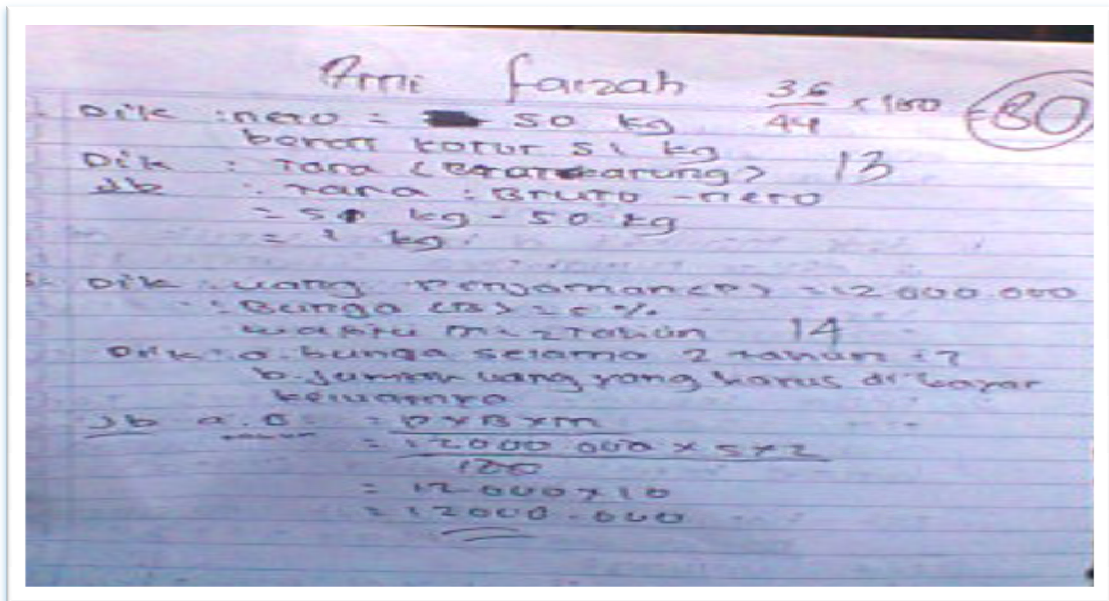 Ami Faizah 36/44 x 100 80
Dik : neto = 50 kg
berat kotor 51 kg
Dik : Tara (Berat karung) 13
Jb : Tara : Bruto - neto
= 51 kg - 50 kg
= 1 kg
Dik : uang Penjaman (P) = 12 000.000
: Bunga (B) =
waktu m = 2 Tahun 14
Dik : a. bunga selama 2 tahun : ?
b. Jumlah uang yang harus di bayar
Jb a. B = P x B x m
= 12000 000 x 5 x 2
100
= 12 000 x 10
= 12000.000